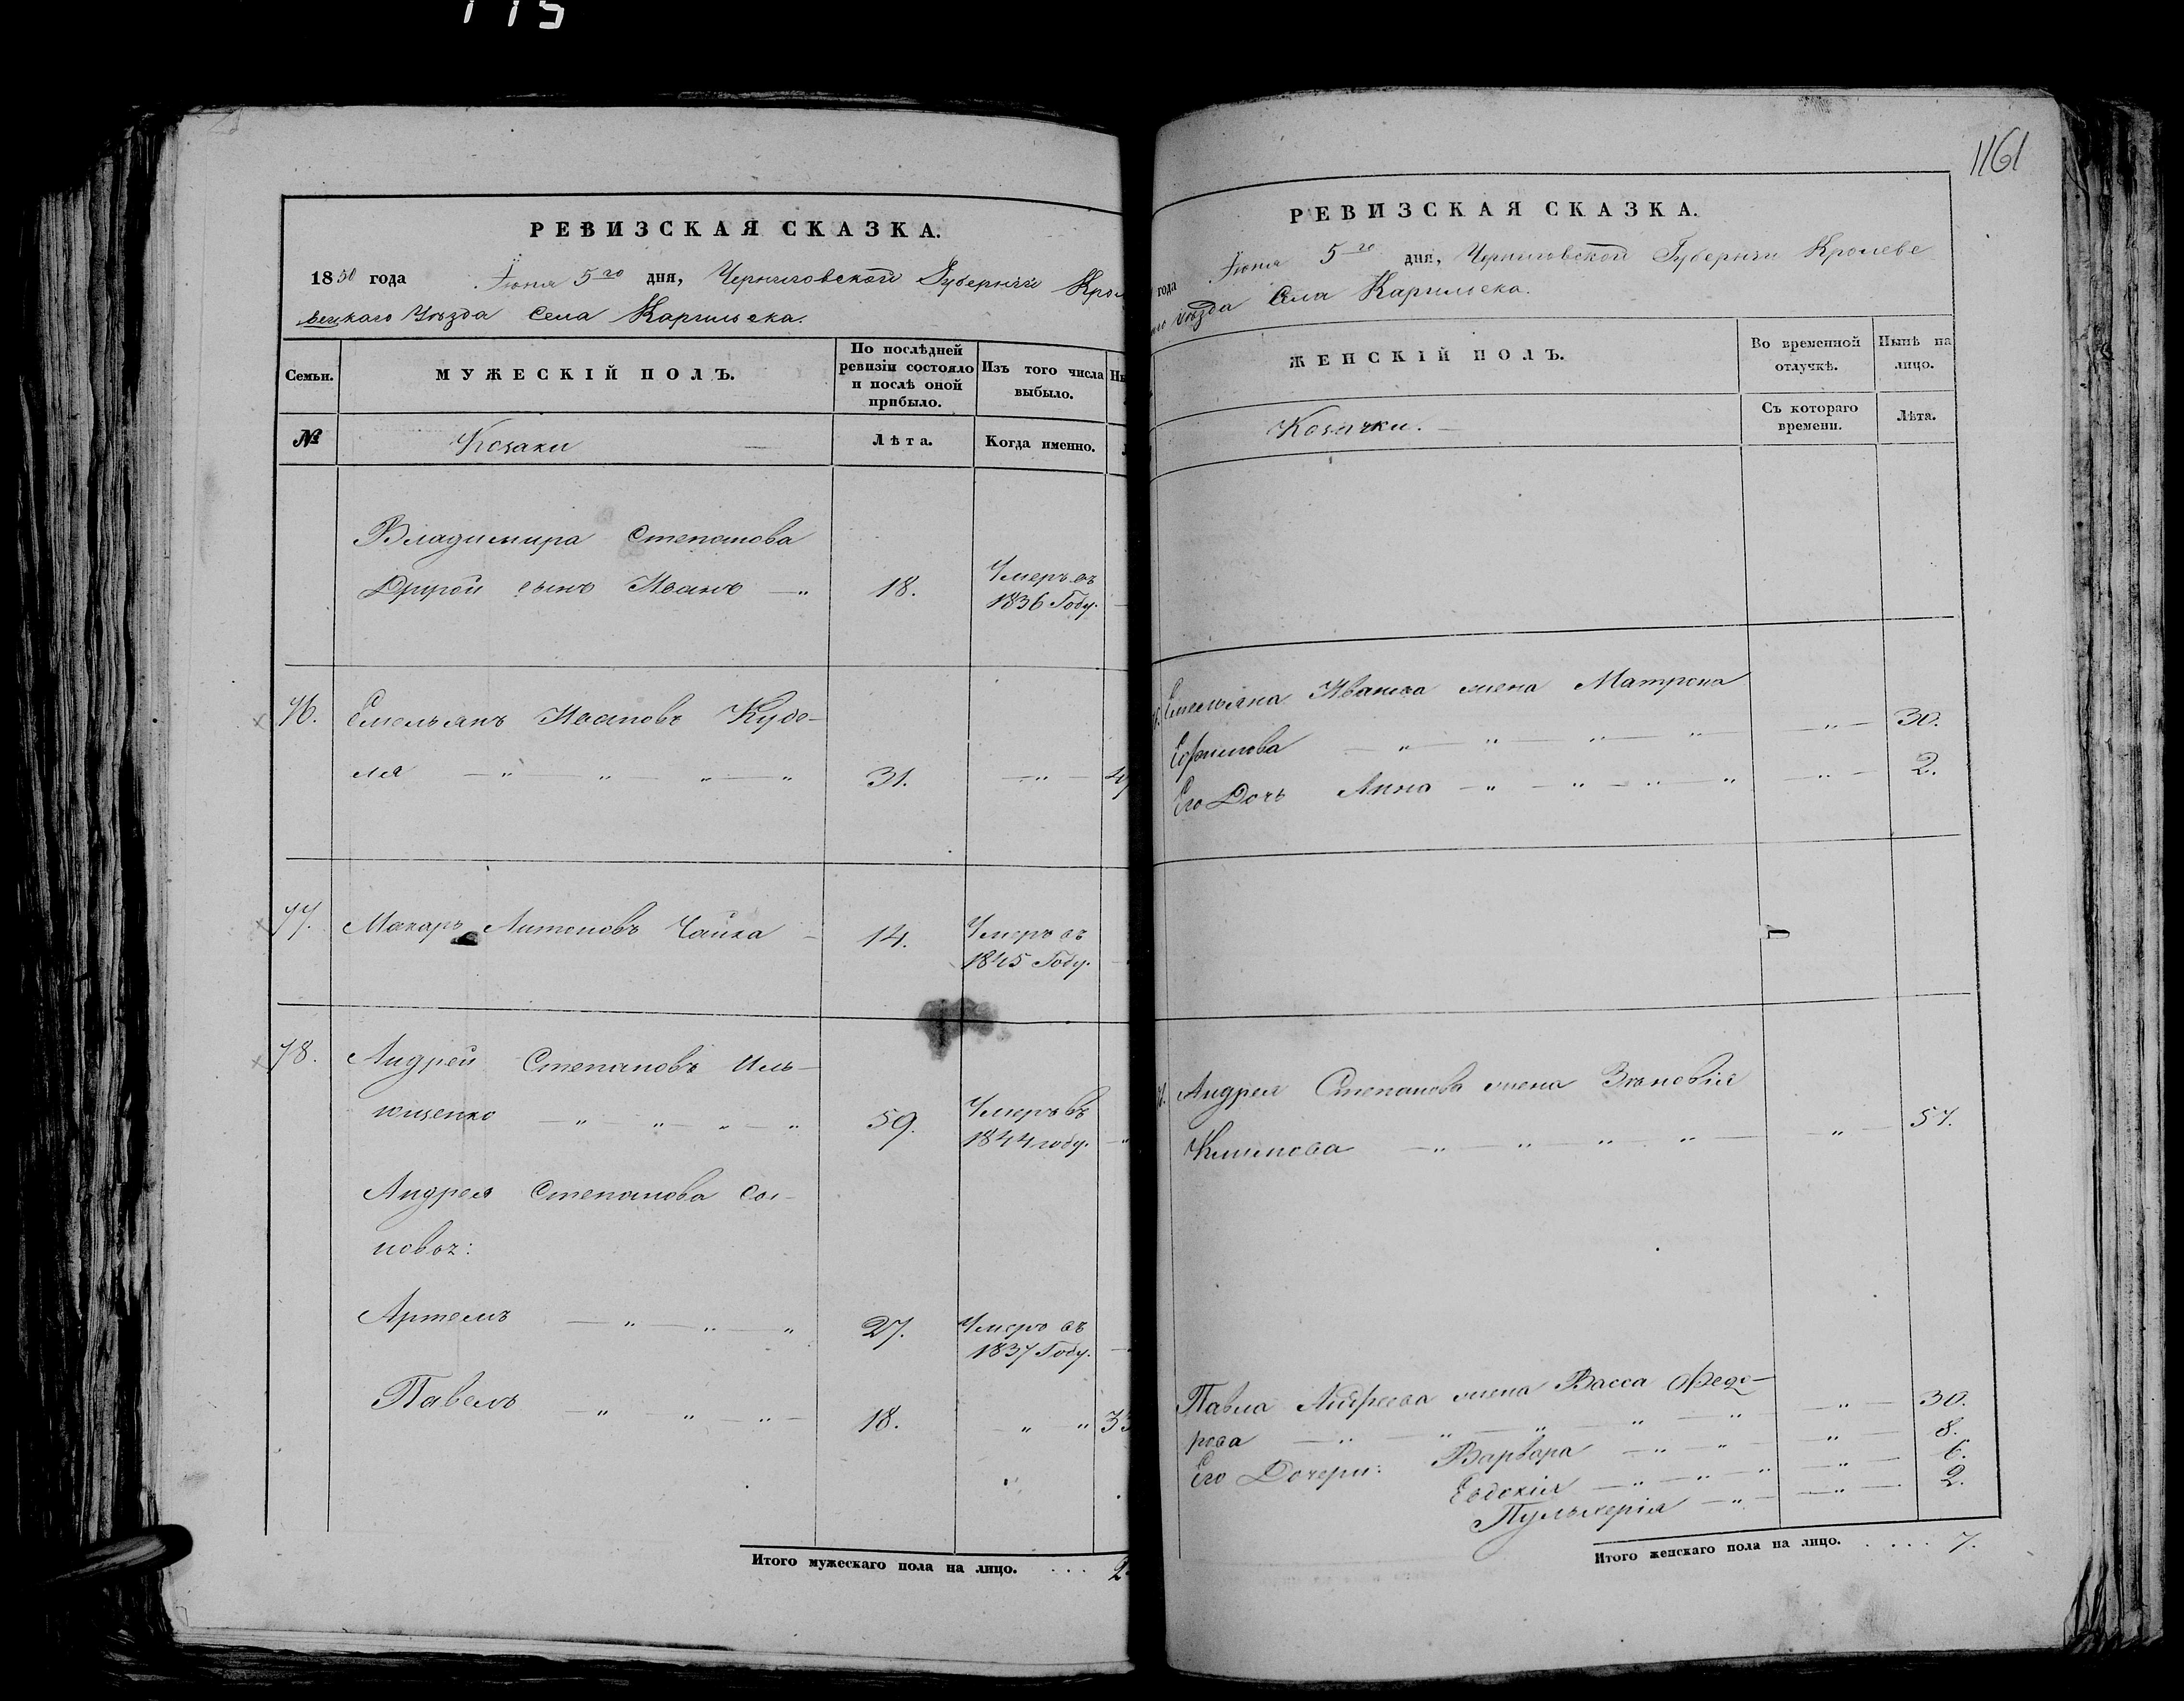 115
РЕВИЗСКАЯ СКАЗКА.
1850 года Іюня 5го дня, Черниговской Губерніи Крол
вецкаго Уѣзда Села Каргильска.
Семьи.
МУЖЕСКІЙ ПОЛЪ.
По послѣдней
ревизіи состояло
и послѣ оной
прибыло.
Изъ того числа
выбыло.
№
Козаки
Лѣта.
Когда именно.
Владимира Степанова
Другой сынъ Иванъ 18. Умеръ въ
1836 Году.
76. Емельянъ Ивановъ Кудо-
ля 31.
77. Макаръ Антоновъ Чайка 14. Умеръ въ
1845 Году.
78. Андрей Степановъ Иль-
ющенко 59. Умеръ въ
1844 году.
Андрея Степанова сы-
новья:
Артемъ 27. Умеръ въ
1837 Году.
Павелъ 18. 33
Итого мужескаго пола на лицо. . . . 2
1161
РЕВИЗСКАЯ СКАЗКА.
года Іюня 5го дня, Черниговской Губерніи Кролеве
Уѣзда Села Каргильска.
ЖЕНСКІЙ ПОЛЪ.
Во временной
отлучкѣ.
Нынѣ на
лицо.
Козачки.
Съ котораго
времени.
Лѣта.
Емельяна Иванова жена Матрона
Ефимова 30.
Его Дочь Анна 2.
Андрея Степанова жена Зѣновія
Климова 57.
Павла Андреева жена Васса Федо-
рова 30.
Его Дочери: Варвара 8.
Евдокія 6.
Пульхерія 2.
Итого женскаго пола на лицо. . . . . 7.